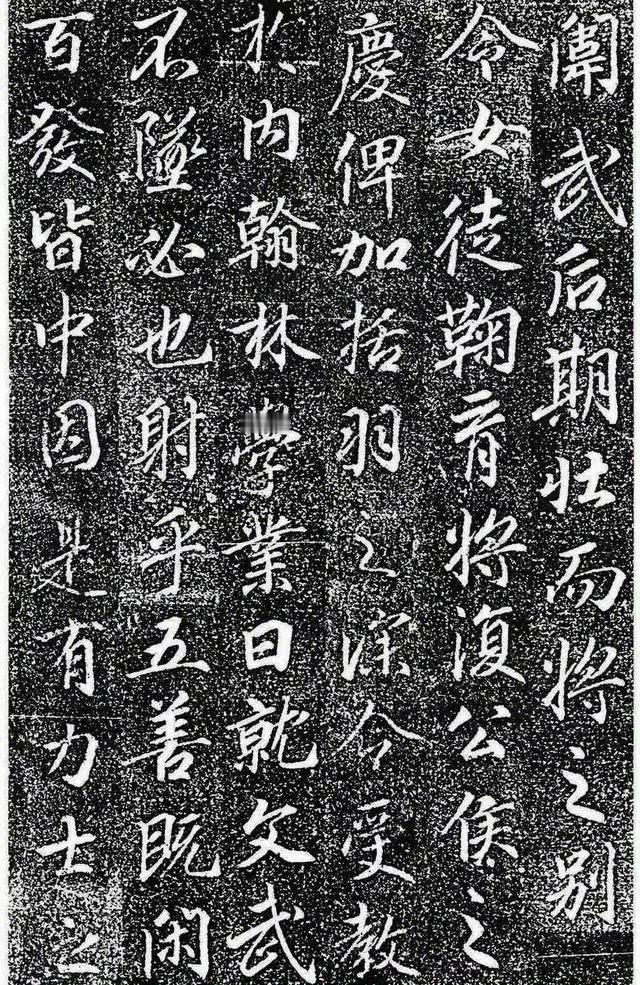 闈武后期壮而将之别
令女徒鞠育将復公侯之
慶俾加括羽之深令受教
扵内翰林學業日就文武
不墜必也射乎五善既閑
百發皆中因是有力士之